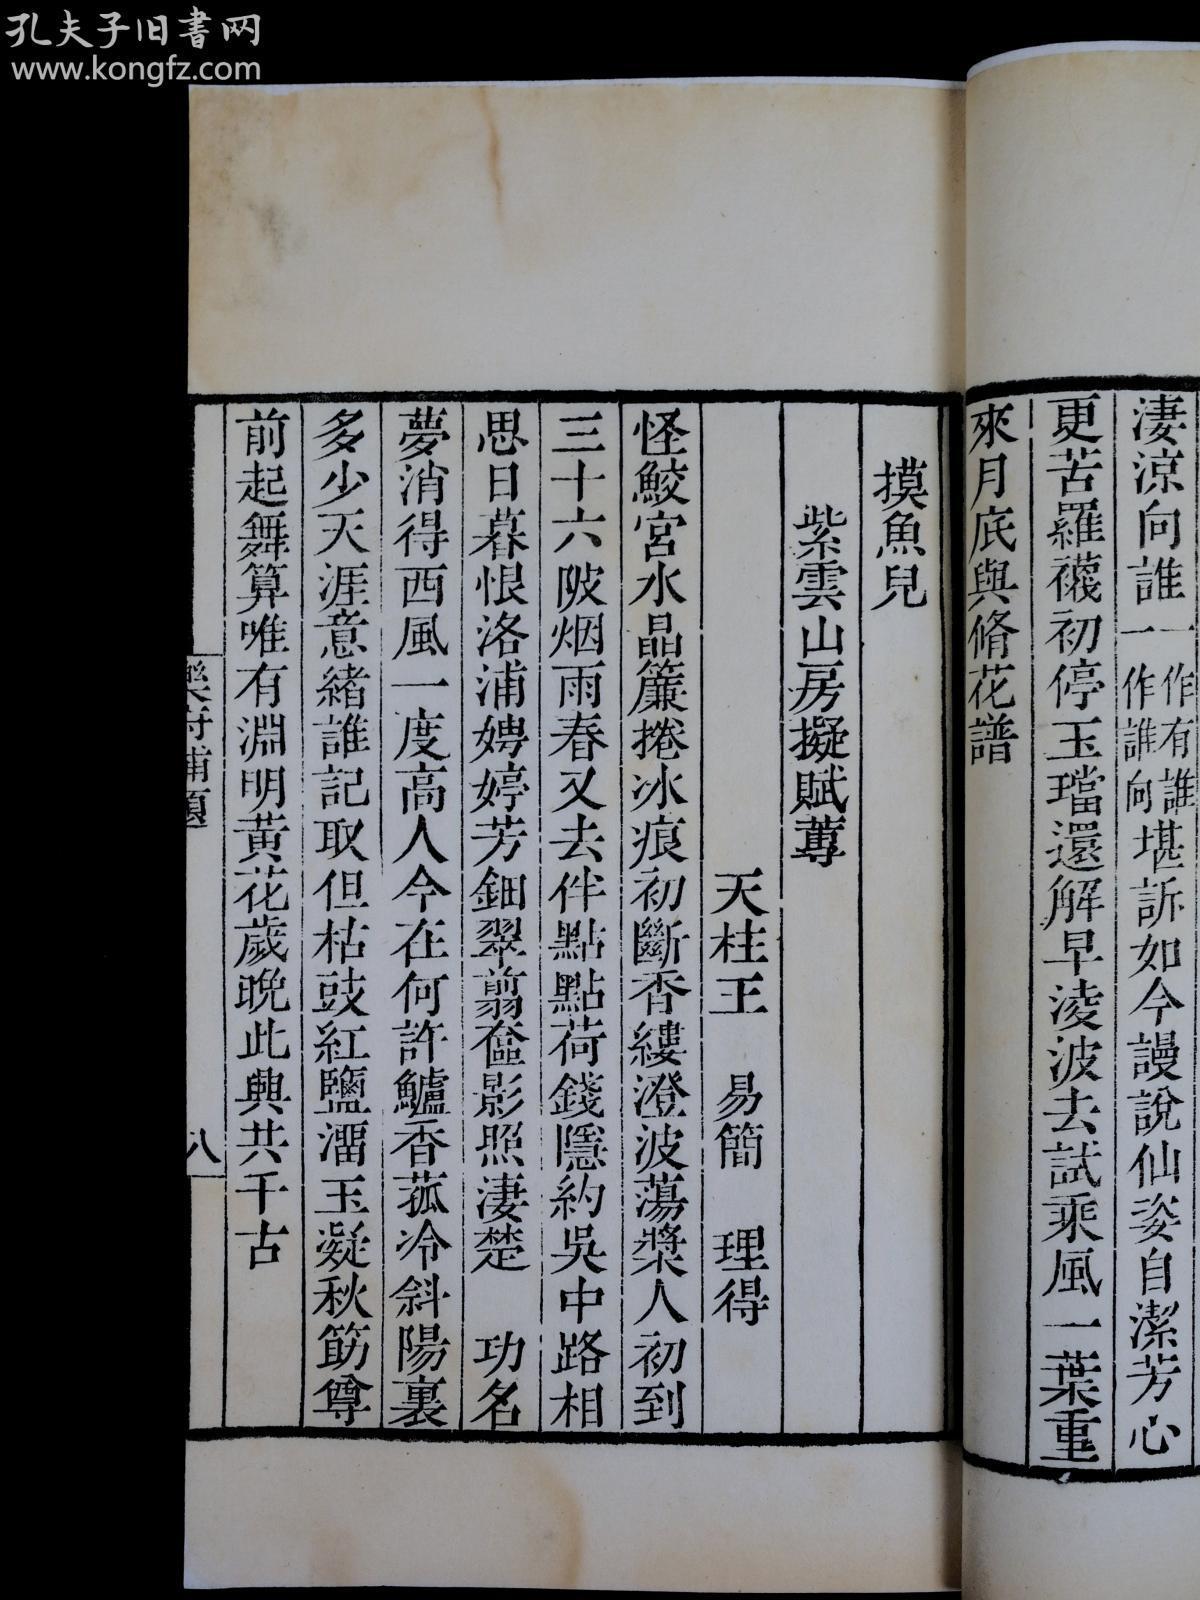 孔夫子旧书网
www.kongfz.com
淒涼向誰一作有誰一作誰向堪訴如今謾說仙姿自潔芳心
更苦羅襪初停玉璫還解早凌波去試乘風一葉重
來月底與脩花譜
摸魚兒
紫雲山房擬賦蓴
天柱王 易簡 理得
怪鮫宮水晶簾捲冰痕初斷香縷澄波蕩槳人初到
三十六陂烟雨春又去伴點點荷錢隱約吳中路相
思日暮恨洛浦娉婷芳鈿翠翦奩影照淒楚 功名
夢消得西風一度高人今在何許鱸香菰冷斜陽裏
多少天涯意緒誰記取但枯豉紅鹽溜玉凝秋筯尊
前起舞算唯有淵明黃花歲晚此興共千古
樂府補題
八